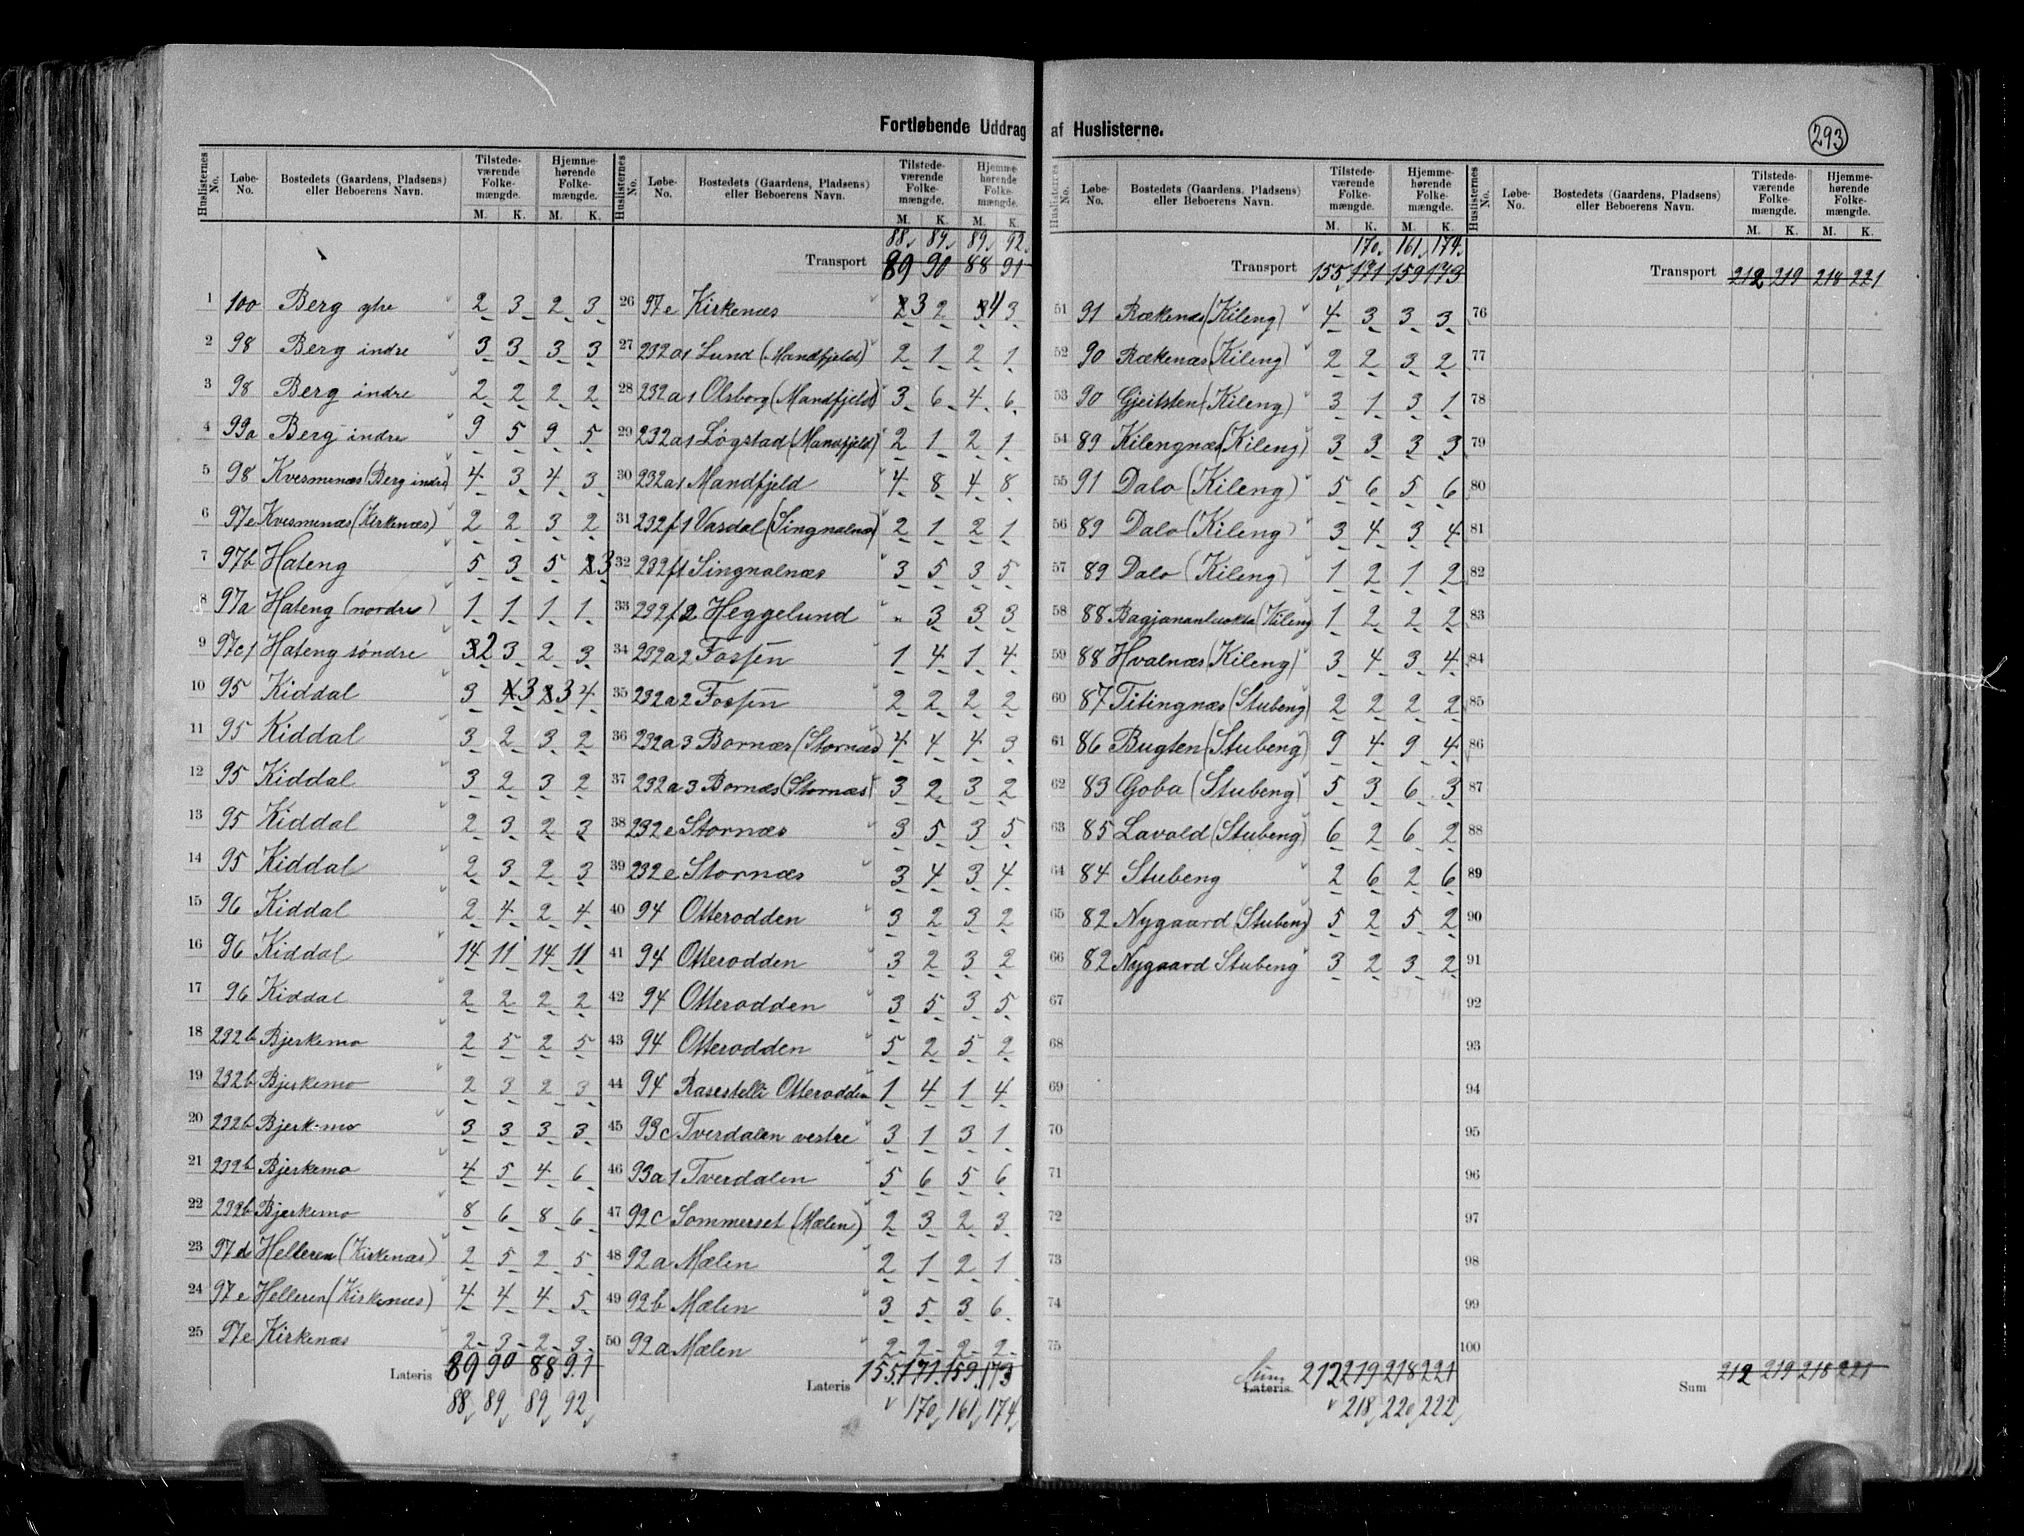 Fortløbende Uddrag af Huslisterne.
293
Huslisternes No. Løbe-No. Bostedets (Gaardens, Pladsens) eller Beboerens Navn. Tilstedeværende Folkemængde. M. K. Hjemmehørende Folkemængde. M. K.
1 100 Berg ytre 2 3 2 3
2 98 Berg indre 3 3 3 3
3 98 Berg indre 2 2 2 2
4 99a Berg indre 9 5 9 5
5 98 Kvesmenæs (Berg indre) 4 3 4 3
6 97e Kvesmenæs (Kirkenæs) 2 2 3 2
7 97b Hateng 5 3 5 3
8 97a Hateng (nordre) 1 1 1 1
9 97c1 Hateng søndre 3 2 3 2 3
10 95 Kiddal 3 4 3 2 3 4
11 95 Kiddal 3 2 3 2
12 95 Kiddal 3 2 3 2
13 95 Kiddal 2 3 2 3
14 95 Kiddal 2 3 2 3
15 96 Kiddal 2 4 2 4
16 96 Kiddal 14 11 14 11
17 96 Kiddal 2 2 2 2
18 232b Bjerkemo 2 5 2 5
19 232b Bjerkemo 2 3 2 3
20 232b Bjerkemo 3 3 3 3
21 232b Bjerkemo 4 5 4 6
22 232b Bjerkemo 8 6 8 6
23 97d Helleren (Kirkenæs) 2 5 2 5
24 97e Helleren (Kirkenæs) 4 4 4 5
25 97e Kirkenæs 2 3 2 3
Lateris 89 90 88 91
88 89 89 92
Huslisternes No. Løbe-No. Bostedets (Gaardens, Pladsens) eller Beboerens Navn. Tilstedeværende Folkemængde. M. K. Hjemmehørende Folkemængde. M. K.
88 89 89 92
Transport 89 90 88 91
26 97e Kirkenæs 2 3 2 3 4 3
27 232a1 Lund (Mandfjeld) 2 1 2 1
28 232a1 Olsborg (Mandfjeld) 3 6 4 6
29 232a1 Løgstad (Mandfjeld) 2 1 2 1
30 232a1 Mandfjeld 4 8 4 8
31 232f1 Vasdal (Singnalnæs) 2 1 2 1
32 232f1 Singnalnæs 3 5 3 5
33 232f2 Heggelund " 3 3 3
34 232a2 Fossen 1 4 1 4
35 232a2 Fossen 2 2 2 2
36 232a3 Bornæs (Stornæs) 4 4 4 3
37 232a3 Bornæs (Stornæs) 3 2 3 2
38 232e Stornæs 3 5 3 5
39 232e Stornæs 3 4 3 4
40 94 Otterodden 3 2 3 2
41 94 Otterodden 3 2 3 2
42 94 Otterodden 3 5 3 5
43 94 Otterodden 5 2 5 2
44 94 Rasestelli Otterodden 1 4 1 4
45 93c Tverdalen vestre 3 1 3 1
46 93a1 Tverdalen 5 6 5 6
47 92c Sommerset (Mælen) 2 3 2 3
48 92a Mælen 2 1 2 1
49 92b Mælen 3 5 3 6
50 92a Mælen 2 2 2 2
Lateris 155 171 159 173
170 161 174
Huslisternes No. Løbe-No. Bostedets (Gaardens, Pladsens) eller Beboerens Navn. Tilstedeværende Folkemængde. M. K. Hjemmehørende Folkemængde. M. K.
170 161 174
Transport 155 171 159 173
51 91 Rækenæs (Kileng) 4 3 3 3
52 90 Rækenæs (Kileng) 2 2 3 2
53 90 Gjeitsten (Kileng) 3 1 3 1
54 89 Kilengnæs (Kileng) 3 3 3 3
55 91 Dalo (Kileng) 5 6 5 6
56 89 Dalo (Kileng) 3 4 3 4
57 89 Dalo (Kileng) 1 2 1 2
58 88 Bagjonanluokta (Kileng 1 2 2 2
59 88 Hvalnæs (Kileng) 3 4 3 4
60 87 Titingnæs (Stubeng) 2 2 2 2
61 86 Bugten (Stubeng) 9 4 9 4
62 83 Goba (Stubeng) 5 3 6 3
63 85 Lavold (Stubeng) 6 2 6 2
64 84 Stubeng 2 6 2 6
65 82 Nygaard (Stubeng) 5 2 5 2
66 82 Nygaard Stubeng 3 2 3 2
67
68
69
70
71
72
73
74
75
Sum Lateris 212 219 218 221
218 220 222
Huslisternes No. Løbe-No. Bostedets (Gaardens, Pladsens) eller Beboerens Navn. Tilstedeværende Folkemængde. M. K. Hjemmehørende Folkemængde. M. K.
Transport 212 219 218 221
76
77
78
79
80
81
82
83
84
85
86
87
88
89
90
91
92
93
94
95
96
97
98
99
100
Sum 212 219 218 221